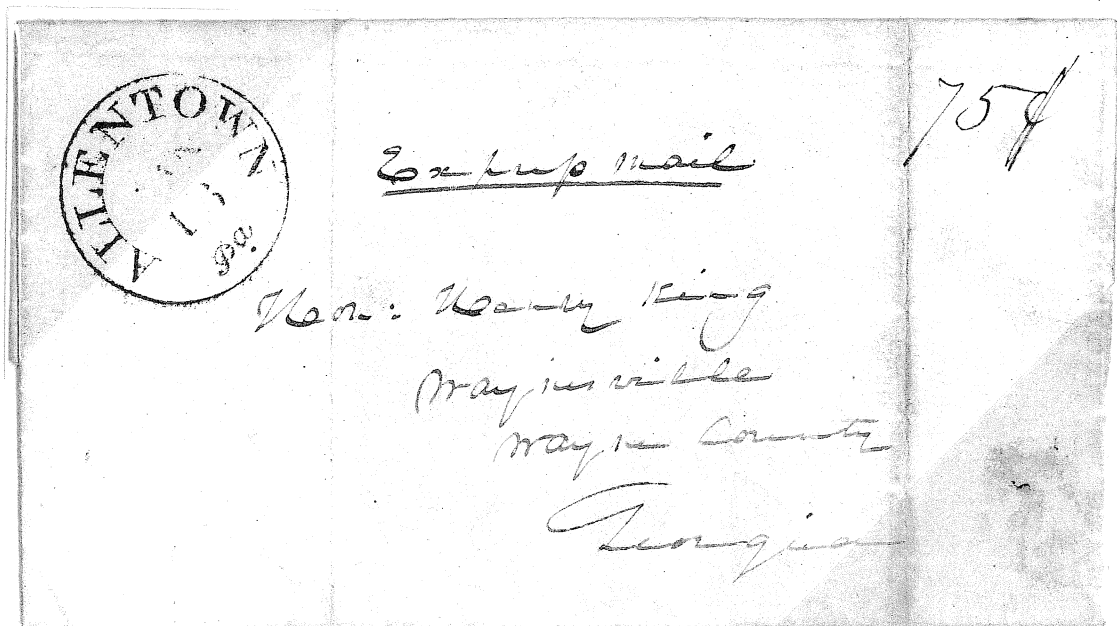 ALLENTOWN
Pa.
75¢
Express mail
Hon: Henry King
Waynesville
Wayne County
Georgia